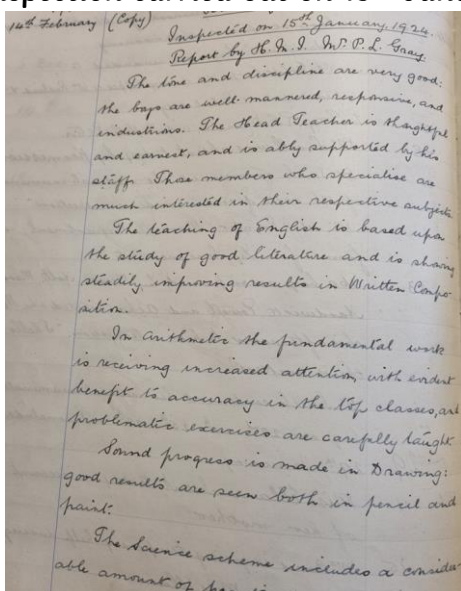 14th February (Copy)
Inspected on 15th January, 1924.
Report by H. M. I. Mr. P. L. Gray.
The tone and discipline are very good:
the boys are well-mannered, responsive, and
industrious. The Head Teacher is thoughtful
and earnest, and is ably supported by his
staff. Those members who specialise are
much interested in their respective subjects.
The teaching of English is based upon
the study of good literature and is showing
steadily improving results in Written Compo-
sition.
In Arithmetic the fundamental work
is receiving increased attention, with evident
benefit to accuracy in the top classes, and
problematic exercises are carefully taught.
Sound progress is made in Drawing:
good results are seen both in pencil and
paint.
The Science scheme includes a consider-
able amount of